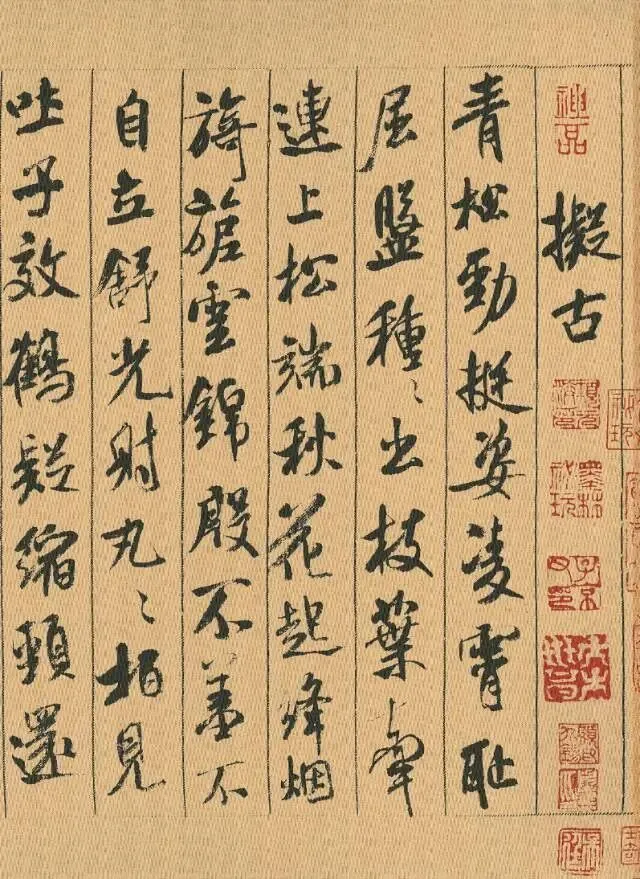 神品
擬古
青松勁挺姿凌霄恥
屈盤種〻出枝葉牽
連上松端秋花起絳烟
旖旎雲錦殷不羞不
自立舒光射丸〻柏見
吐子效鶴疑縮頸還